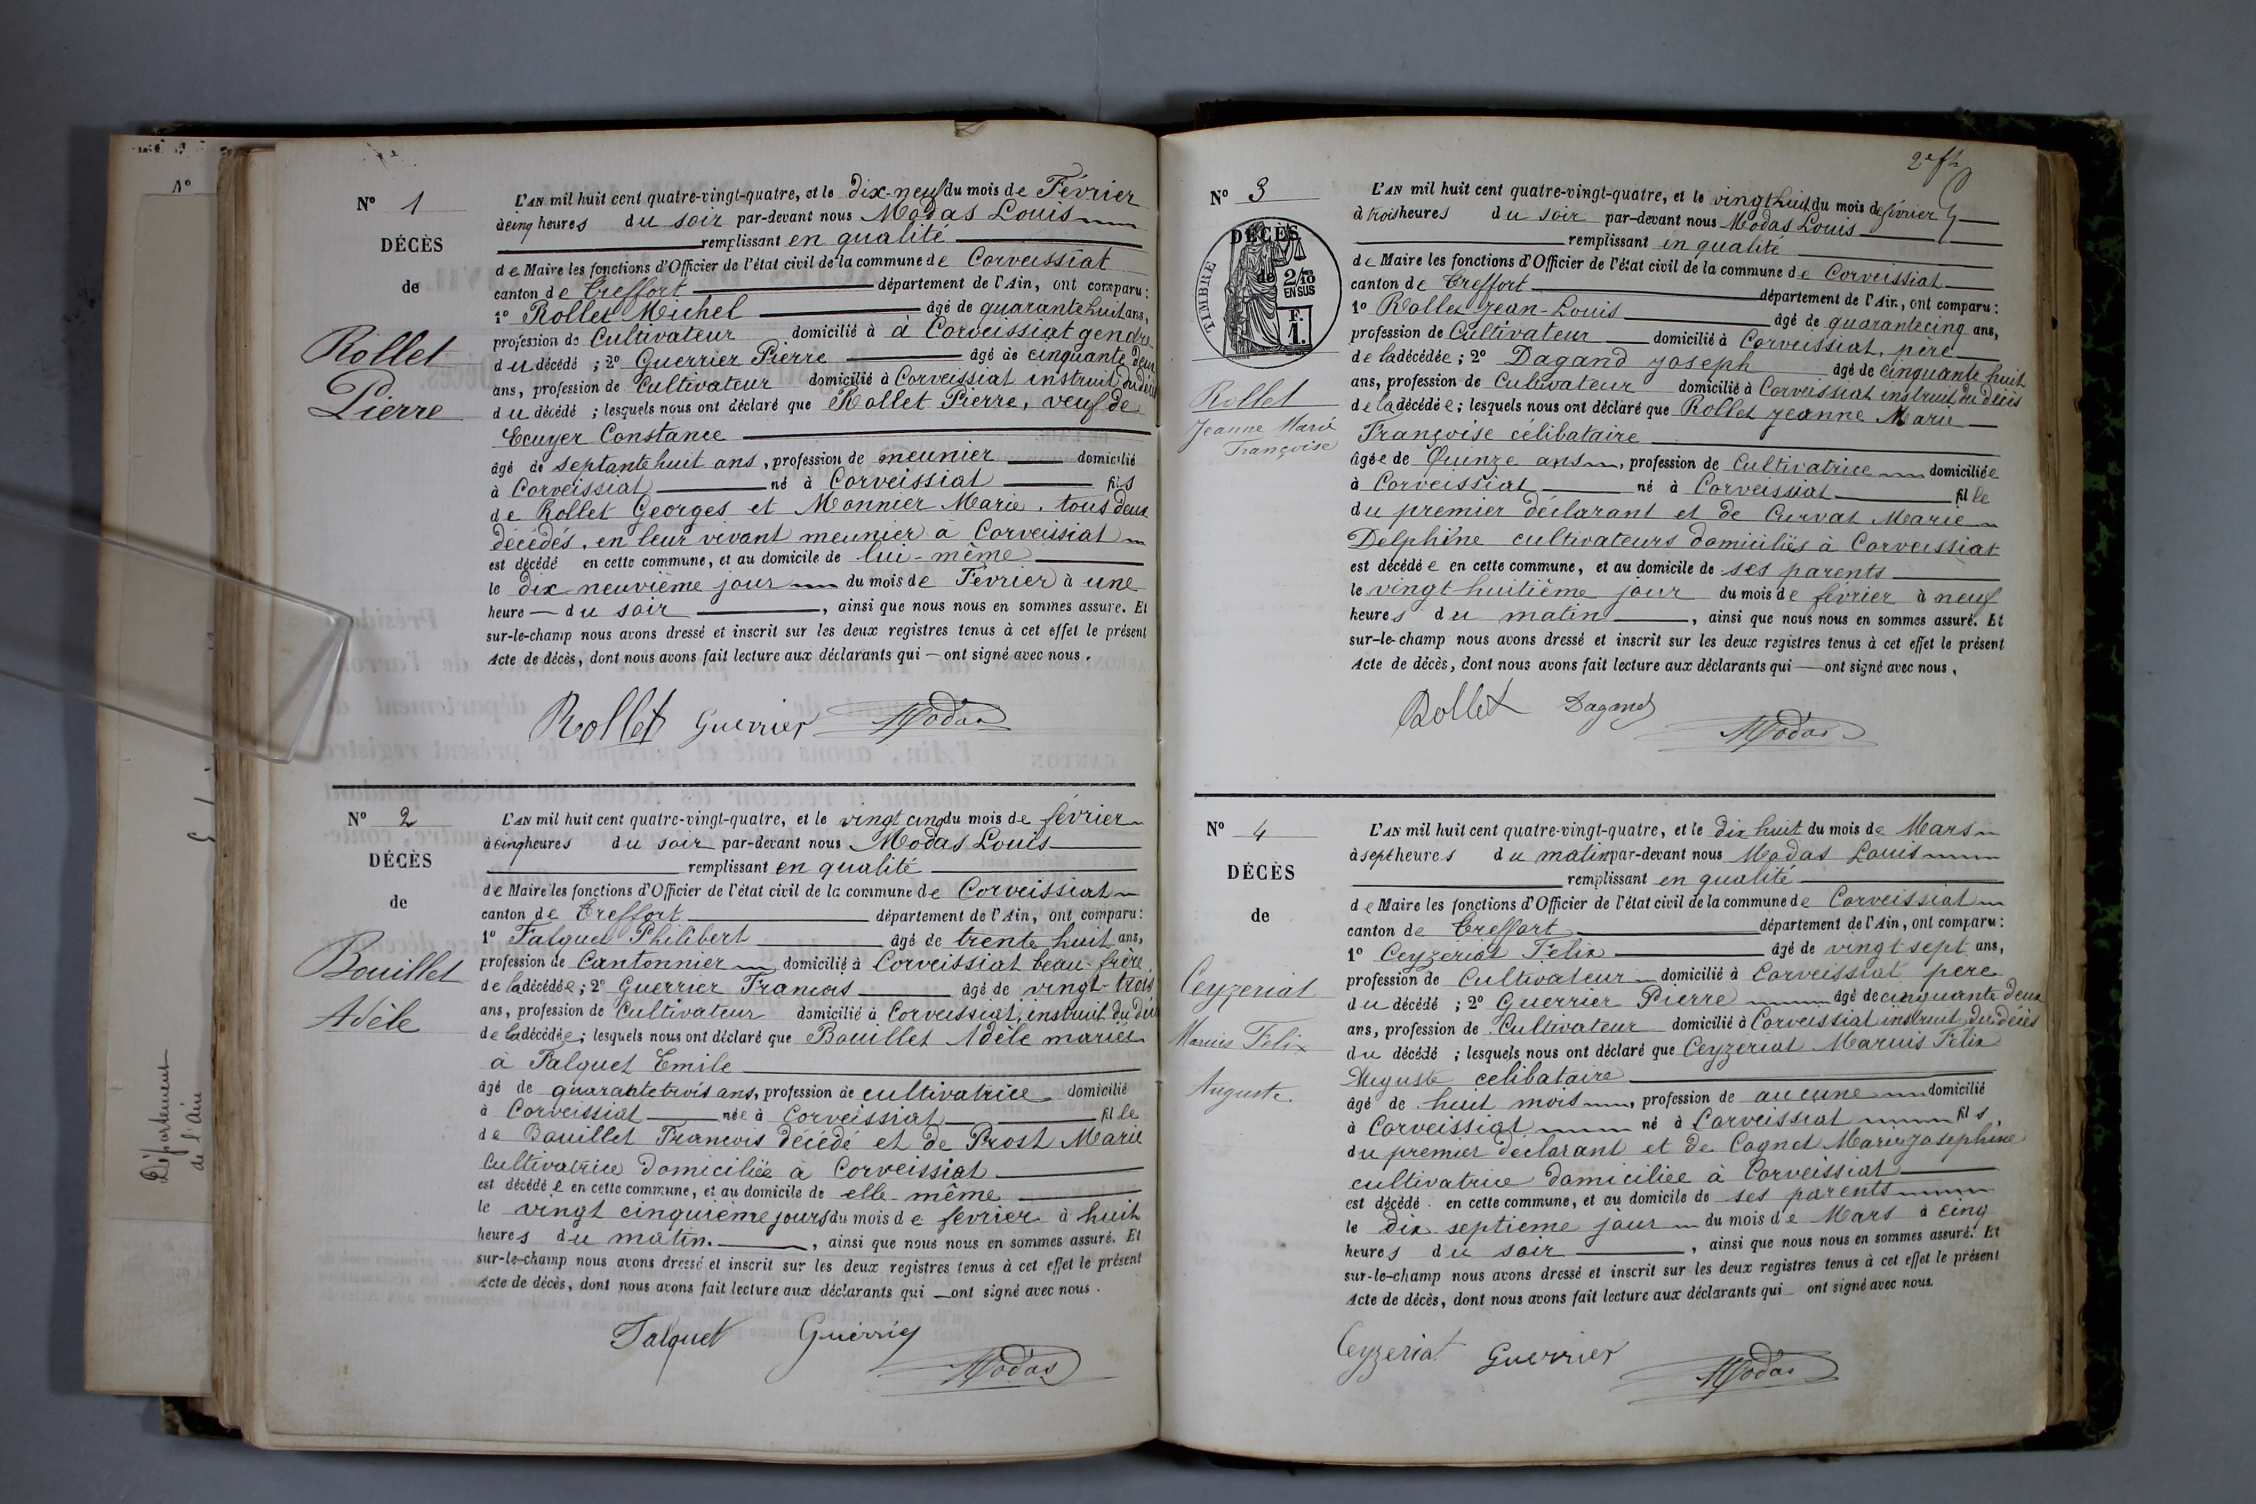 N° 1
DÉCÈS
de
Rollet
Pierre
L'AN mil huit cent quatre-vingt-quatre, et le dix-neuf du mois de Février
à cinq heures du soir par-devant nous Modas Louis
remplissant en qualité
de Maire les fonctions d'Officier de l'état civil de la commune de Corveissiat
canton de Treffort département de l'Ain, ont comparu :
1° Rollet Michel âgé de quarante huit ans,
profession de Cultivateur domicilié à à Corveissiat gendre
du décédé ; 2° Guerrier Pierre âgé de cinquante deux
ans, profession de Cultivateur domicilié à Corveissiat instruit du décès
du décédé ; lesquels nous ont déclaré que Rollet Pierre, veuf de
Ecuyer Constance
âgé de septante huit ans, profession de meunier domicilié
à Corveissiat né à Corveissiat fils
de Rollet Georges et Monnier Marie, tous deux
décédés, en leur vivant meunier à Corveissiat
est décédé en cette commune, et au domicile de lui-même
le dix neuvième jour du mois de Février à une
heure du soir, ainsi que nous nous en sommes assuré. Et
sur-le-champ nous avons dressé et inscrit sur les deux registres tenus à cet effet le présent
Acte de décès, dont nous avons fait lecture aux déclarants qui — ont signé avec nous.
Rollet Guerrier Modas
N° 2
DÉCÈS
de
Bouillet
Adèle
L'AN mil huit cent quatre-vingt-quatre, et le vingt cinq du mois de février
à cinq heures du soir par-devant nous Modas Louis
remplissant en qualité
de Maire les fonctions d'Officier de l'état civil de la commune de Corveissiat
canton de Treffort département de l'Ain, ont comparu :
1° Falquet Philibert âgé de trente huit ans,
profession de Cantonnier domicilié à Corveissiat beau-frère
de la décédée ; 2° Guerrier Francois âgé de vingt-trois
ans, profession de Cultivateur domicilié à Corveissiat, instruit du décès
de la décédée ; lesquels nous ont déclaré que Bouillet Adèle mariée
à Falquet Emile
âgé de quarante trois ans, profession de cultivatrice domicilié
à Corveissiat née à Corveissiat fille
de Bouillet Francois décédé et de Prost Marie
Cultivatrice domiciliée à Corveissiat
est décédée en cette commune, et au domicile de elle-même
le vingt cinquième jours du mois de fevrier à huit
heures du matin., ainsi que nous nous en sommes assuré. Et
sur-le-champ nous avons dressé et inscrit sur les deux registres tenus à cet effet le présent
Acte de décès, dont nous avons fait lecture aux déclarants qui — ont signé avec nous.
Falquet Guerrier
Modas
Département
de l'ain
2e
N° 3
DÉCÈS
de
TIMBRE
2/10
EN SUS
F.
1.
Rollet
Jeanne Marie
Françoise
L'AN mil huit cent quatre-vingt-quatre, et le vingt huit du mois de février
à trois heures du soir par-devant nous Modas Louis
remplissant en qualité
de Maire les fonctions d'Officier de l'état civil de la commune de Corveissiat
canton de Treffort département de l'Ain, ont comparu :
1° Rollet Jean-Louis âgé de quarante cinq ans,
profession de Cultivateur domicilié à Corveissiat, père
de la décédée ; 2° Dagand Joseph âgé de cinquante huit
ans, profession de Cultivateur domicilié à Corveissiat instruit du décès
de la décédée ; lesquels nous ont déclaré que Rollet Jeanne Marie
Françoise célibataire
âgée de Quinze ans, profession de Cultivatrice domiciliée
à Corveissiat né à Corveissiat fille
du premier déclarant et de Curvat Marie
Delphine cultivateurs domiciliés à Corveissiat
est décédée en cette commune, et au domicile de ses parents
le vingt huitième jour du mois de février à neuf
heures du matin, ainsi que nous nous en sommes assuré. Et
sur-le-champ nous avons dressé et inscrit sur les deux registres tenus à cet effet le présent
Acte de décès, dont nous avons fait lecture aux déclarants qui — ont signé avec nous.
Rollet Dagand
Modas
N° 4
DÉCÈS
de
Ceyzeriat
Marius Félix
Auguste.
L'AN mil huit cent quatre-vingt-quatre, et le dix huit du mois de Mars
à sept heures du matin par-devant nous Modas Louis
remplissant en qualité
de Maire les fonctions d'Officier de l'état civil de la commune de Corveissiat
canton de Treffort département de l'Ain, ont comparu :
1° Ceyzeriat Felix âgé de vingt sept ans,
profession de Cultivateur domicilié à Corveissiat pere
du décédé ; 2° Guerrier Pierre âgé de cinquante deux
ans, profession de Cultivateur domicilié à Corveissiat instruit du décès
du décédé ; lesquels nous ont déclaré que Ceyzeriat Marius Felix
Auguste celibataire
âgé de huit mois, profession de aucune domicilié
à Corveissiat né à Corveissiat fils
du premier déclarant et de Cognet Marie Josephine
cultivatrice domiciliee à Corveissiat
est décédé en cette commune, et au domicile de ses parents
le dix septième jour du mois de Mars à cinq
heures du soir, ainsi que nous nous en sommes assuré. Et
sur-le-champ nous avons dressé et inscrit sur les deux registres tenus à cet effet le présent
Acte de décès, dont nous avons fait lecture aux déclarants qui ont signé avec nous.
Ceyzeriat Guerrier
Modas